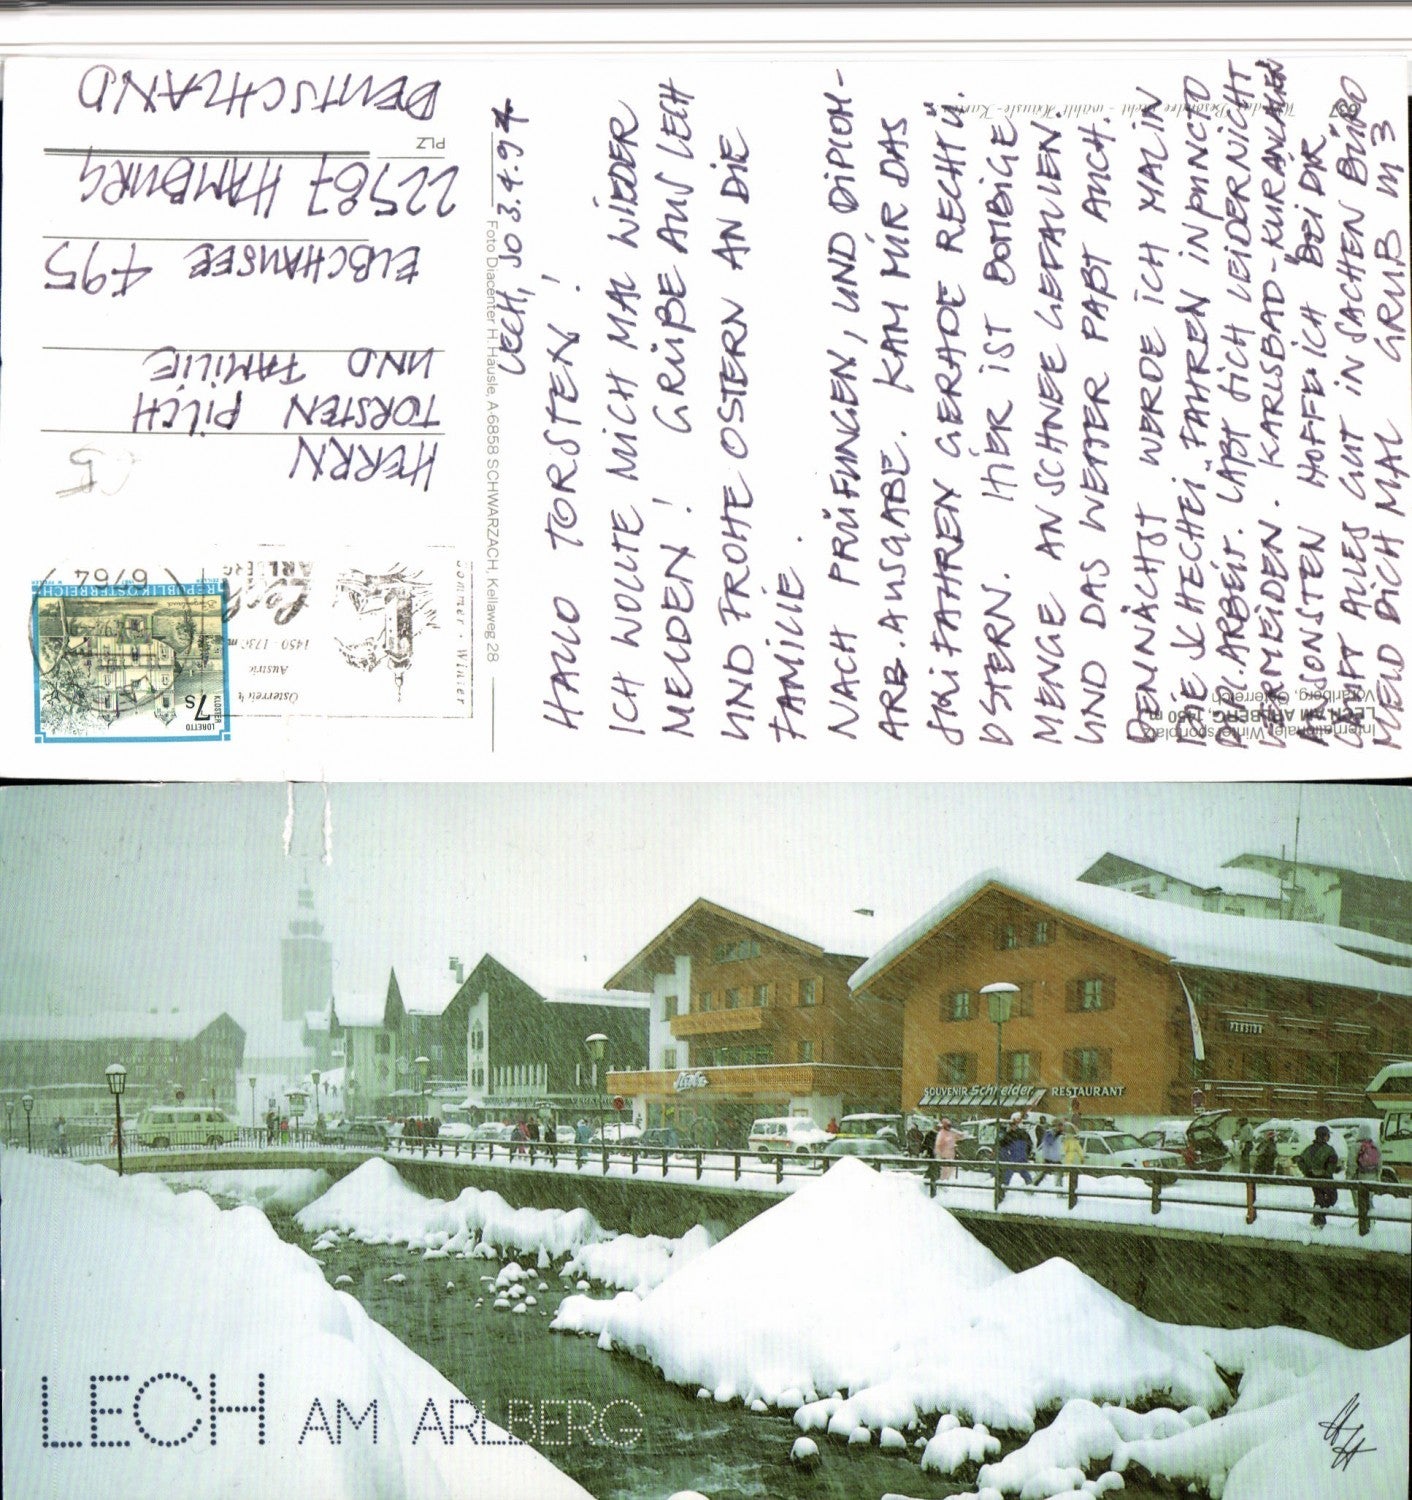 LECH, SO 3.4.94
HALLO TORSTEN!
ICH WOLLTE MICH MAL WIEDER
MELDEN! GRÜßE AUS LECH
UND FROHE OSTERN AN DIE
FAMILIE.
NACH PRÜFUNGEN, UND DIPLOM-
ARB.AUSGABE. KAM MIR DAS
SKIFAHREN GERADE RECHT Ü.
OSTERN. HIER IST BOMBIGE
MENGE AN SCHNEE GEFALLEN
UND DAS WETTER PAßT AUCH.
DEMNÄCHST WERDE ICH MAL IN
DIE FAHREN IN PUNCTO
DPL.ARBEIT. LÄßT SICH LEIDER NICHT
VERMEIDEN. KARLSBAD-
ANSONSTEN HOFFE ICH, BEI DIR
LÄUFT ALLES GUT IN SACHEN BÜRO
MELD DICH MAL GRUß
HERRN
TORSTEN PILCH
UND FAMILIE
ELBCHAUSSEE 495
22587 HAMBURG
PLZ
DEUTSCHLAND
Foto Diacenter H. Häusle, A-6858 SCHWARZACH, Kellaweg 28
Internationaler Wintersportplatz
LECH AM ARLBERG, 1450 m
Vorarlberg, Österreich
637
Wer das Besondere sucht - wählt Häusle-Karten
LORETTO
KLOSTER
7s
Burgenland
REPUBLIK ÖSTERREICH
6764
Österreich
Austria
1450 - 1730 m
Lech
ARLBERG
Sommer · Winter
PENSION
SOUVENIR Schneider RESTAURANT
LECH AM ARLBERG
HH